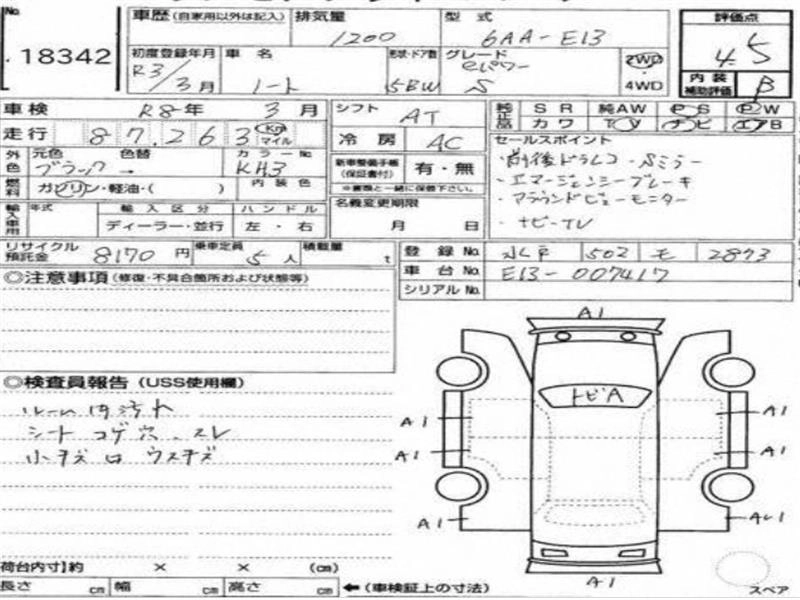 No. 18342
車歴 (自家用以外は記入) 排気量 1200 型式 6AA-E13 評価点 4.5
初度登録年月 R3/3月 車名 ノート 形状・ドア数 5BW グレード eパワー S 2WD・4WD 内装補助評価 B
車検 R8年 3月 シフト AT 純正品 SR 純AW PS PW
カワ TV ナビ エアB
走行 87,263 Km マイル 冷房 AC セールスポイント
外色 元色 ブラック 色替 → カラーNo KH3 新車整備手帳(保証書付) 有・無 ※書類と一緒に保管下さい。
・前後ドラレコ・Sミラー
燃料 ガソリン・軽油・( ) 内装色
・エマージェンシーブレーキ
輸入車用 年式 輸入区分 ディーラー・並行 ハンドル 左・右 名義変更期限 月 日
・アラウンドビューモニター
・ナビ・TV
リサイクル預託金 8170円 乗車定員 5人 積載量 t 登録No. 502 モ 2873
車台No. E13-007417
シリアルNo.
◎注意事項 (修復・不具合箇所および状態等)
◎検査員報告 (USS使用欄)
ルーム内汚れ
シート コゲ穴、スレ
小キズ ウスキズ
A1
トビA
A1 A1
A1 A1
A1
A1
荷台内寸)約 × × (cm)
長さ cm 幅 cm 高さ cm ←(車検証上の寸法)
スペア